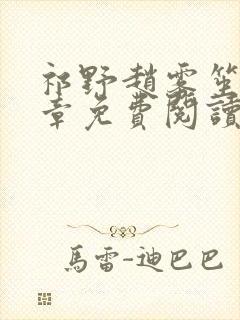 祁野趙雾笙
章免費閱讀
馬雷-迪巴巴